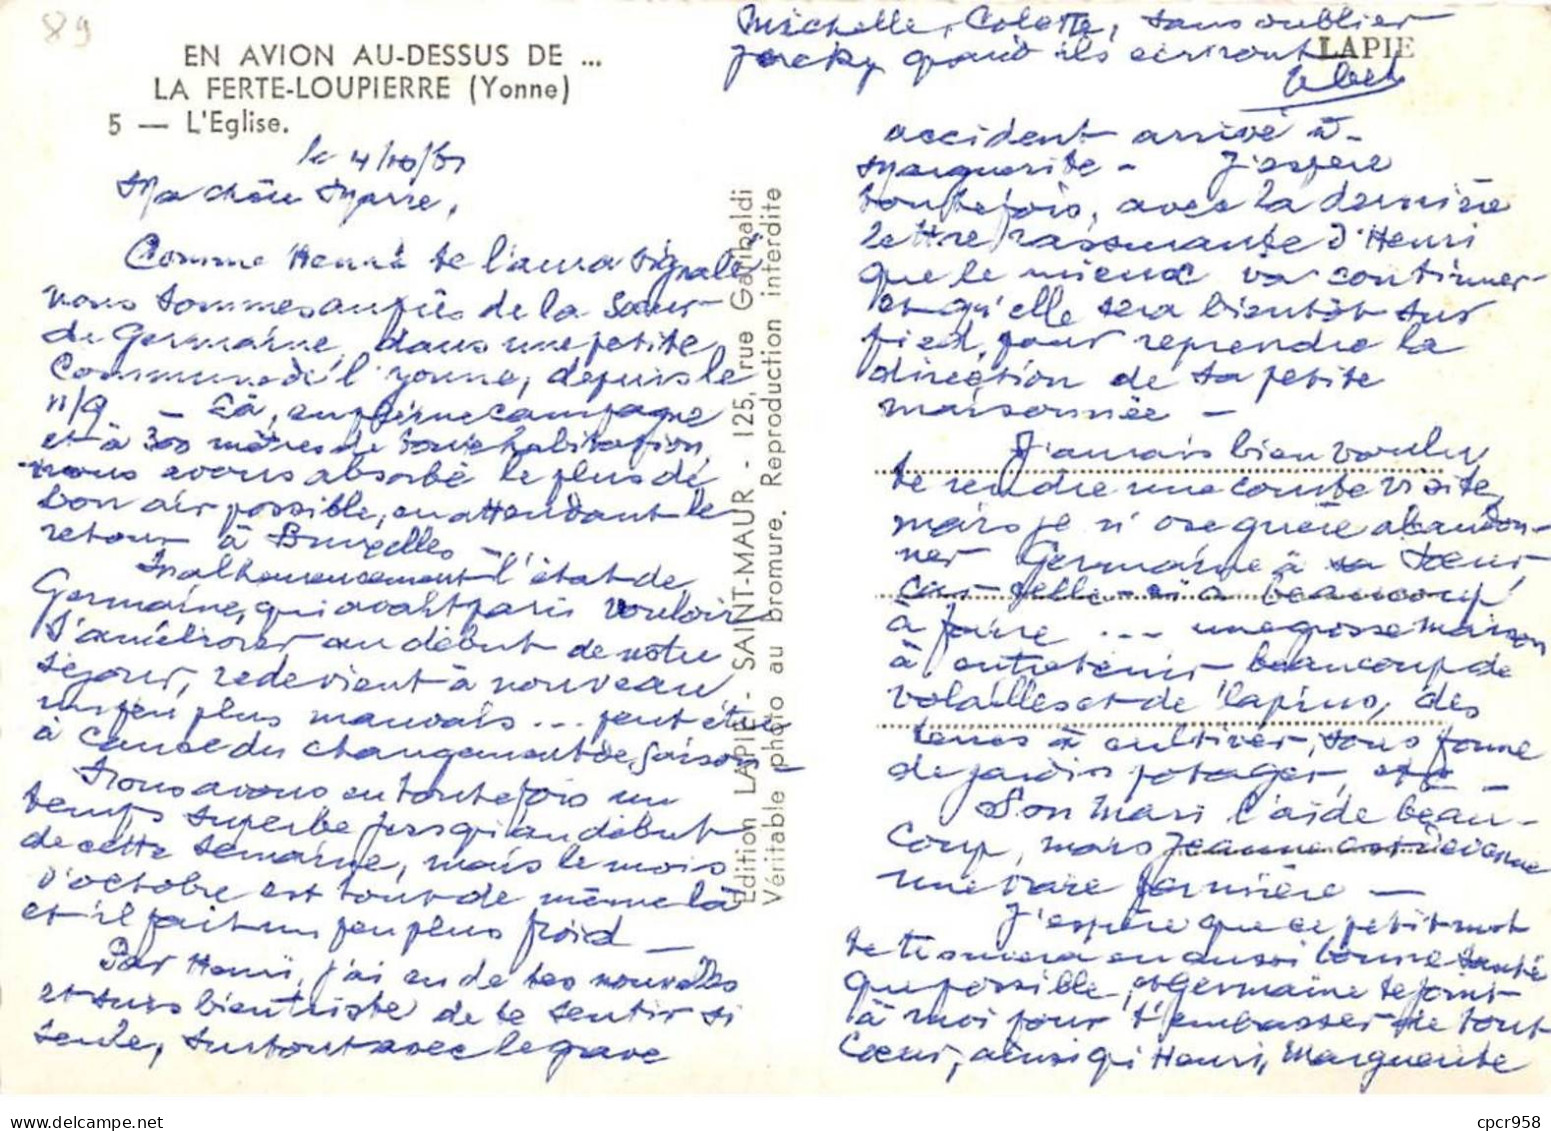 89
EN AVION AU-DESSUS DE ...
LA FERTE-LOUPIERRE (Yonne)
5 — L'Eglise.
LAPIE
le 4/10/61
Ma chère
Comme Henri te l'aura signalé
nous sommes auprès de la Sœur
de Germaine, dans une petite
Commune de l'Yonne, depuis le
11/9 — Là, en pleine campagne
et à 300 mètres de toute habitation,
nous avons absorbé le plus de
bon air possible, en attendant le
retour à Bruxelles —
Malheureusement l'état de
Germaine, qui avait paru vouloir
s'améliorer au début de notre
séjour, redevient à nouveau
un peu plus mauvais ... peut être
à cause du changement de saison —
Nous avons eu toutefois un
temps superbe jusqu'au début
de cette semaine, mais le mois
d'octobre est tout de même là
et il fait un peu plus froid —
Par Henri, j'ai eu de tes nouvelles
et suis bien triste de te sentir si
seule, surtout avec le grave
accident arrivé à
Marguerite — J'espère
toutefois, avec la dernière
lettre rassurante d'Henri
que le mieux va continuer
et qu'elle sera bientôt sur
pied, pour reprendre la
direction de ta petite
maisonnée —
J'aurais bien voulu
te rendre une courte visite,
mais je n'ose guère abandon-
ner Germaine à sa sœur,
car celle-ci a beaucoup
à faire ... une grosse maison
à entretenir beaucoup de
volailles et de lapins, des
terres à cultiver, sous forme
de jardin potager, etc —
Son mari l'aide beau-
coup, mais Jeanne est devenue
une vraie fermière —
J'espère que ce petit mot
te trouvera en aussi bonne santé
que possible, et Germaine se joint
à moi pour t'embrasser de tout
cœur, ainsi qu'Henri, Marguerite
Michelle, Colette, sans oublier
Jacky quand ils écriront
Edition LAPIE - SAINT-MAUR - 125, rue Garibaldi
Véritable photo au bromure. Reproduction interdite
cpcr958